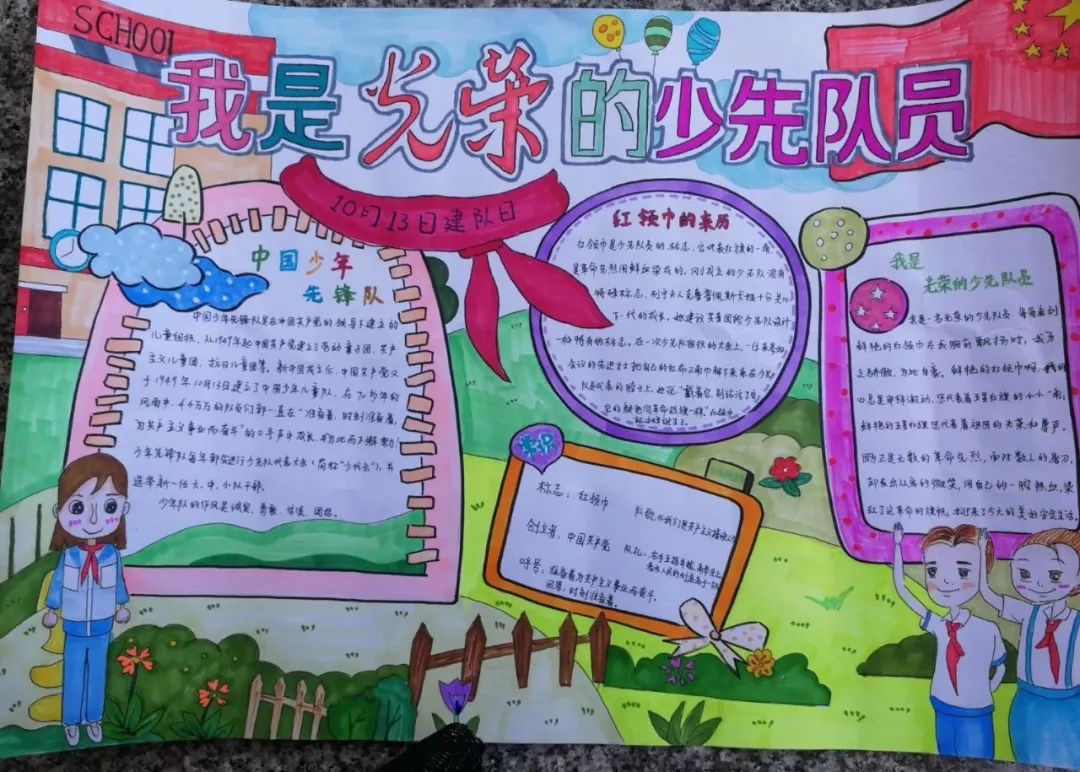 SCHOOL
我是光荣的少先队员
10月13日建队日
中国少年
先锋队
中国少年先锋队是在中国共产党的领导下建立的
儿童组织，从1949年起中国共产党建立了劳动童子团、共产
主义儿童团、抗日儿童团等，新中国成立后，中国共产党又
于1949年10月13日建立了中国少年儿童队。在70多年的
风雨中，千千万万的队员们都一直在"准备着，时刻准备着，
为共产主义事业而奋斗"的口号声中成长，并为此而不懈努力！
少年先锋队每年都会进行少先队代表大会（简称"少代会"），并
选举新一任大、中、小队干部。
少年队的作风是诚实、勇敢、活泼、团结。
红领巾的来历
红领巾是少先队员的标志，它代表红旗的一角，
是革命先烈用鲜血染成的。刚成立的少先队没有
特殊标志，列宁夫人克鲁普佩斯卡娅十分关心
下一代的成长，她建议共青团给少先队设计
一种特有的标志。在一次少先队组织的大会上，一位来参加
会议的先进女工把自己的红布三角巾解下来系在少先
队员代表的脖子上，她说："戴着它，别玷污了它，
它的颜色同革命战旗一样。"红领巾
就这样诞生了。
常识
标志：红领巾
队歌：《我们是共产主义接班人》
创立者：中国共产党
队礼：右手五指并拢，高举头上
表示人民的利益高于一切
呼号：准备着为共产主义事业而奋斗，
回答：时刻准备着。
我是
光荣的少先队员
我是一名光荣的少先队员，每每看到
鲜艳的红领巾在我胸前飘扬时，我为
之骄傲，为此自豪。鲜艳的红领巾啊，我的
心总是那样激动，您代表着五星红旗的小小一角，
鲜艳的五星红旗您代表着祖国的光荣和尊严。
因为正是无数的革命先烈，面对敌人的屠刀，
却露出从容的微笑，用自己的一腔热血，染
红了这革命的旗帜，才迎来了今天的美好安定生活。